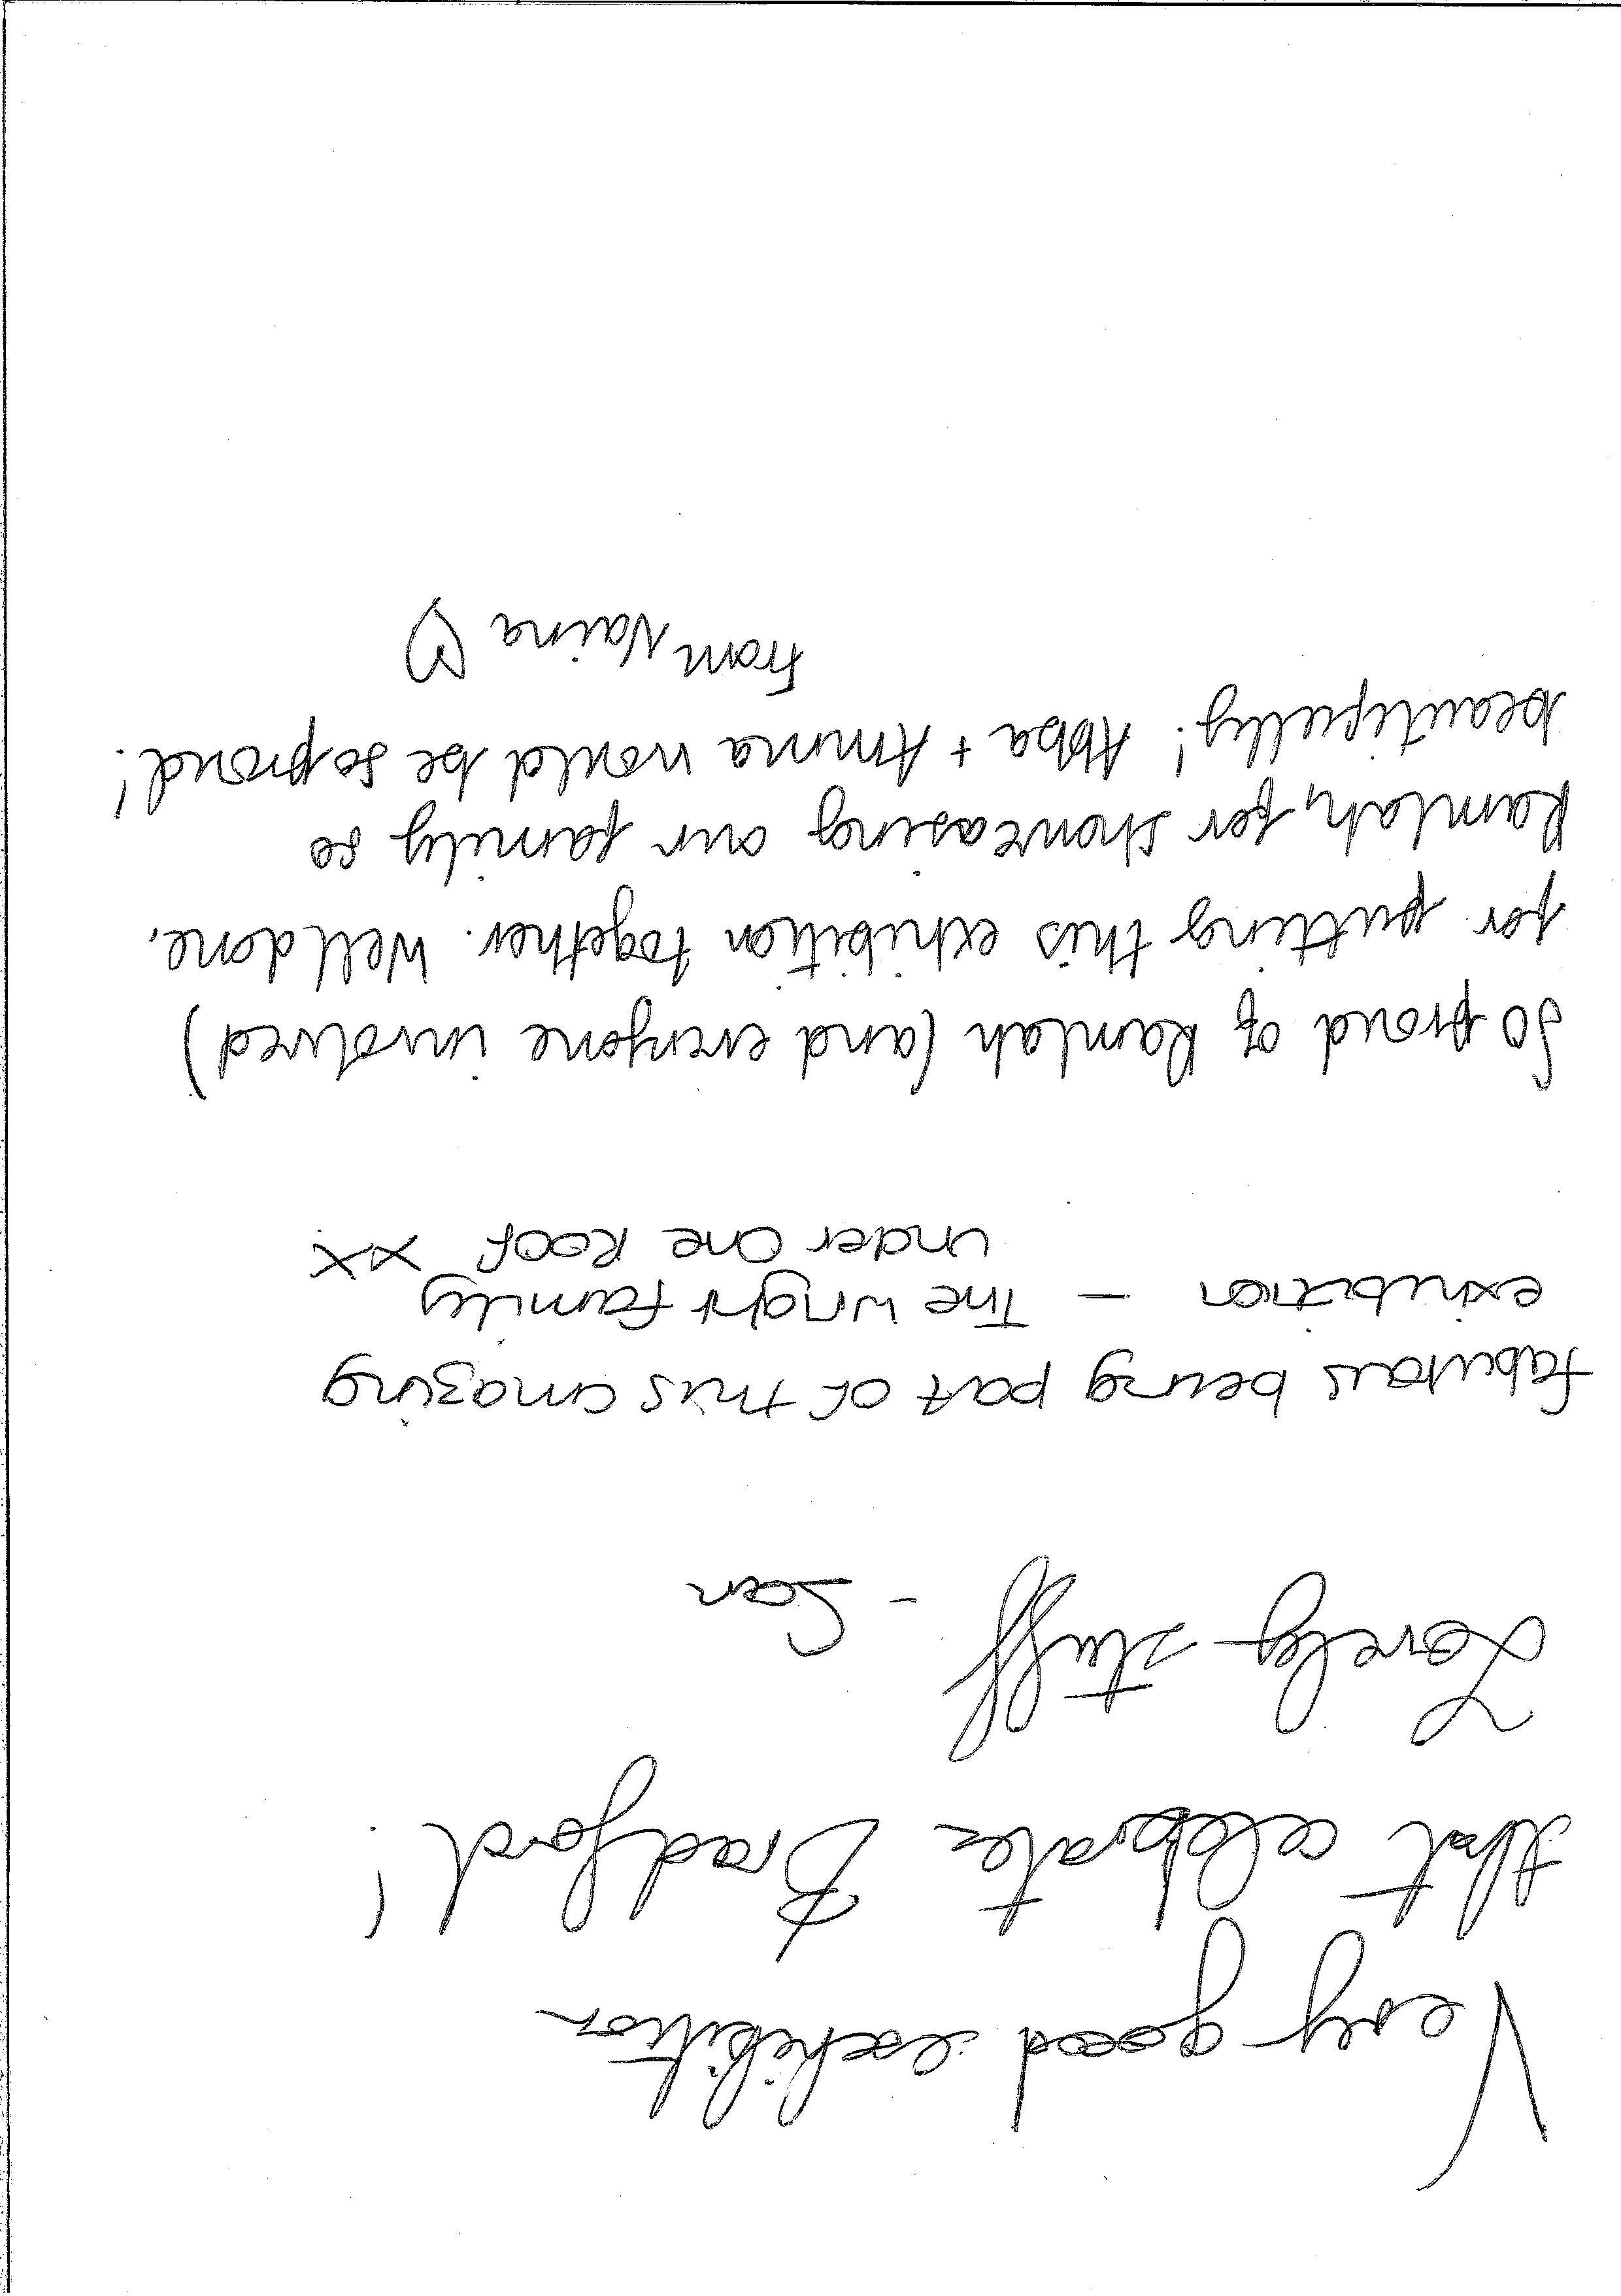 Very good exhibition
that celebrates Bradford!
Lovely stuff -
fabulous being part of this amazing
exhibition - The Wright family
Under One Roof xx
So proud of Ramlah (and everyone involved)
for putting this exhibition together. Well done,
Ramlah, for showcasing our family so
beautifully! Abba + Amma would be so proud!
From Naina ♡